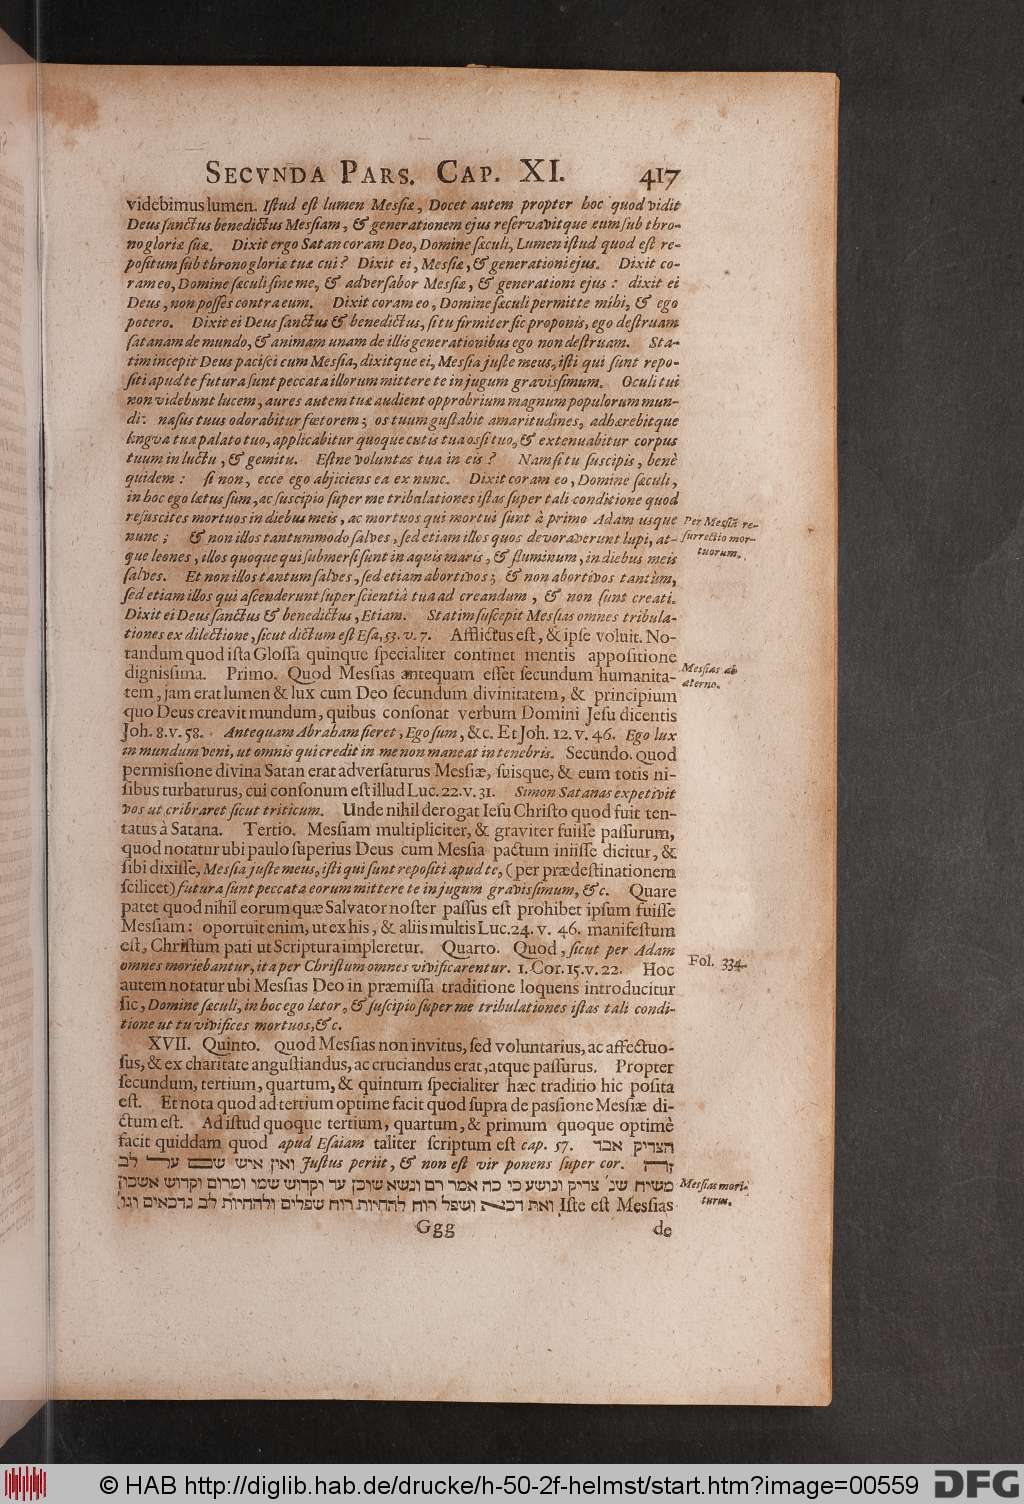 SECVNDA PARS. CAP. XI. 417
videbimus lumen. Iſtud eſt lumen Meſſiæ, Docet autem propter hoc quod vidit
Deus ſanctus benedictus Meſſiam, & generationem ejus reſervavitque eum ſub thro-
no gloriæ ſuæ. Dixit ergo Satan coram Deo, Domine ſæculi, Lumen iſtud quod eſt re-
poſitum ſub throno gloriæ tuæ cui? Dixit ei, Meſſiæ, & generationi ejus. Dixit co-
ram eo, Domine ſæculi ſine me, & adverſabor Meſſiæ, & generationi ejus: dixit ei
Deus, non poſſes contra eum. Dixit coram eo, Domine ſæculi permitte mihi, & ego
potero. Dixit ei Deus ſanctus & benedictus, ſi tu firmiter ſic proponis, ego deſtruam
ſatanam de mundo, & animam unam de illis generationibus ego non deſtruam. Sta-
tim incepit Deus paciſci cum Meſſia, dixitque ei, Meſſia juſte meus, iſti qui ſunt repo-
ſiti apud te futura ſunt peccata illorum mittere te in jugum graviſſimum. Oculi tui
non videbunt lucem, aures autem tuæ audient opprobrium magnum populorum mun-
di: naſus tuus odorabitur fœtorem; os tuum guſtabit amaritudines, adhærebitque
lingva tua palato tuo, applicabitur quoque cutis tua oſſi tuo, & extenuabitur corpus
tuum in luctu, & gemitu. Eſtne voluntas tua in eis? Nam ſi tu ſuſcipis, benè
quidem: ſi non, ecce ego abjiciens ea ex nunc. Dixit coram eo, Domine ſæculi,
in hoc ego lætus ſum, ac ſuſcipio ſuper me tribulationes iſtas ſuper tali conditione quod
reſuscites mortuos in diebus meis, ac mortuos qui mortui ſunt à primo Adam usque
nunc; & non illos tantummodo ſalves, ſed etiam illos quos devoraverunt lupi, at-
que leones, illos quoque qui ſubmerſi ſunt in aquis maris, & fluminum, in diebus meis
ſalves. Et non illos tantum ſalves, ſed etiam abortivos; & non abortivos tantùm,
ſed etiam illos qui aſcenderunt ſuper ſcientiâ tua ad creandum, & non ſunt creati.
Dixit ei Deus ſanctus & benedictus, Etiam. Statim ſuſcepit Meſſias omnes tribula-
tiones ex dilectione, ſicut dictum eſt Eſa, 53. v. 7. Afflictus eſt, & ipſe voluit. No-
tandum quod iſta Gloſſa quinque ſpecialiter continet mentis appoſitione
digniſſima. Primo. Quod Meſſias antequam eſſet ſecundum humanita-
tem, jam erat lumen & lux cum Deo ſecundum divinitatem, & principium
quo Deus creavit mundum, quibus conſonat verbum Domini Jeſu dicentis
Joh. 8. v. 58. Antequam Abraham fieret, Ego ſum, &c. Et Joh. 12. v. 46. Ego lux
in mundum veni, ut omnis qui credit in me non maneat in tenebris. Secundo. quod
permiſſione divina Satan erat adverſaturus Meſſiæ, ſuisque, & eum totis ni-
ſibus turbaturus, cui conſonum eſt illud Luc. 22. v. 31. Simon Satanas expetivit
vos ut cribraret ſicut triticum. Unde nihil derogat Ieſu Chriſto quod fuit ten-
tatus à Satana. Tertio. Meſſiam multipliciter, & graviter fuiſſe paſſurum,
quod notatur ubi paulo ſuperius Deus cum Meſſia pactum iniiſſe dicitur, &
ſibi dixiſſe, Meſſia juſte meus, iſti qui ſunt repoſiti apud te, (per prædeſtinationem
ſcilicet) futura ſunt peccata eorum mittere te in jugum graviſſimum, &c. Quare
patet quod nihil eorum quæ Salvator noſter paſſus eſt prohibet ipſum fuiſſe
Meſſiam: oportuit enim, ut ex his, & aliis multis Luc. 24. v. 46. manifeſtum
eſt, Chriſtum pati ut Scriptura impleretur. Quarto. Quod, ſicut per Adam
omnes moriebantur, ita per Chriſtum omnes vivificarentur. 1. Cor. 15. v. 22. Hoc
autem notatur ubi Meſſias Deo in præmiſſa traditione loquens introducitur
ſic, Domine ſæculi, in hoc ego lætor, & ſuſcipio ſuper me tribulationes iſtas tali condi-
tione ut tu vivifices mortuos, &c.
XVII. Quinto. Quod Meſſias non invitus, ſed voluntarius, ac affectuo-
ſus, & ex charitate anguſtiandus, ac cruciandus erat, atque paſſurus. Propter
ſecundum, tertium, quartum, & quintum ſpecialiter hæc traditio hic poſita
eſt. Et nota quod ad tertium optime facit quod ſupra de paſſione Meſſiæ di-
ctum eſt. Ad iſtud quoque tertium, quartum, & primum quoque optimè
facit quiddam quod apud Eſaiam taliter ſcriptum eſt cap. 57. הצדיק אבד
ואין איש שם על לב Juſtus periit, & non eſt vir ponens ſuper cor. זה
משיח שנ׳ צדיק ונושע כי כה אמר רם ונשא שוכן עד וקדוש שמו ומרום וקדוש אשכון
ואת דכא ושפל רוח להחיות רוח שפלים ולהחיות לב נדכאים וגו׳ Iſte eſt Meſſias
Ggg de
Per Meſſiã re-
ſurrectio mor-
tuorum.
Meſſias ab
æterno.
Fol. 334.
Meſſias mori-
turus.
© HAB http://diglib.hab.de/drucke/h-50-2f-helmst/start.htm?image=00559 DFG